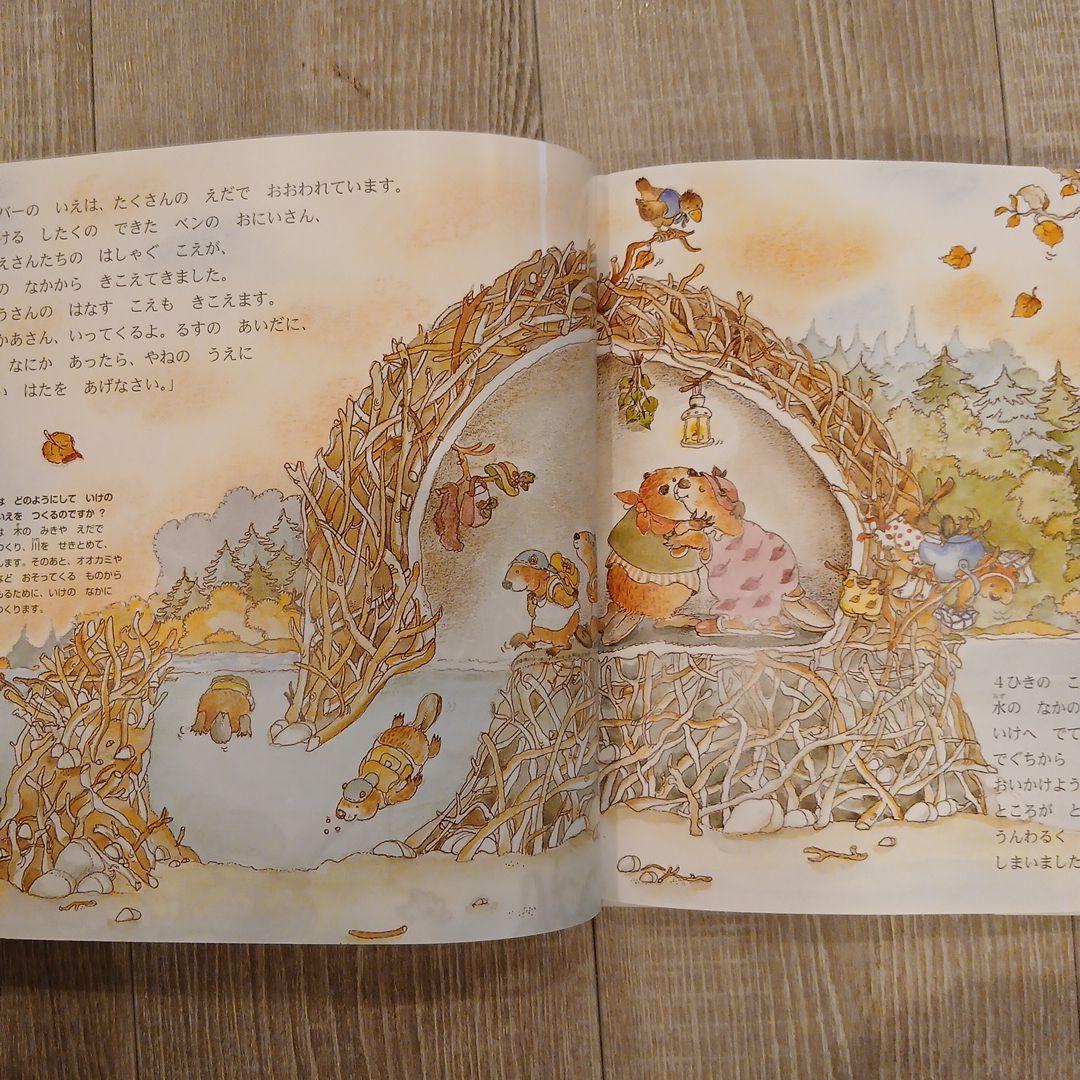 バーの いえは、たくさんの えだで おおわれています。
ける したくの できた ベンの おにいさん、
えさんたちの はしゃぐ こえが、
の なかから きこえてきました。
うさんの はなす こえも きこえます。
かあさん、いってくるよ。るすの あいだに、
なにか あったら、やねの うえに
い はたを あげなさい。」
は どのようにして いけの
いえを つくるのですか？
は 木の みきや えだで
つくり、川を せきとめて、
します。そのあと、オオカミや
など おそってくる ものから
もるために、いけの なかに
つくります。
4ひきの こ
水の なかの
いけへ でて
でぐちから
おいかけよう
ところが と
うんわるく
しまいました